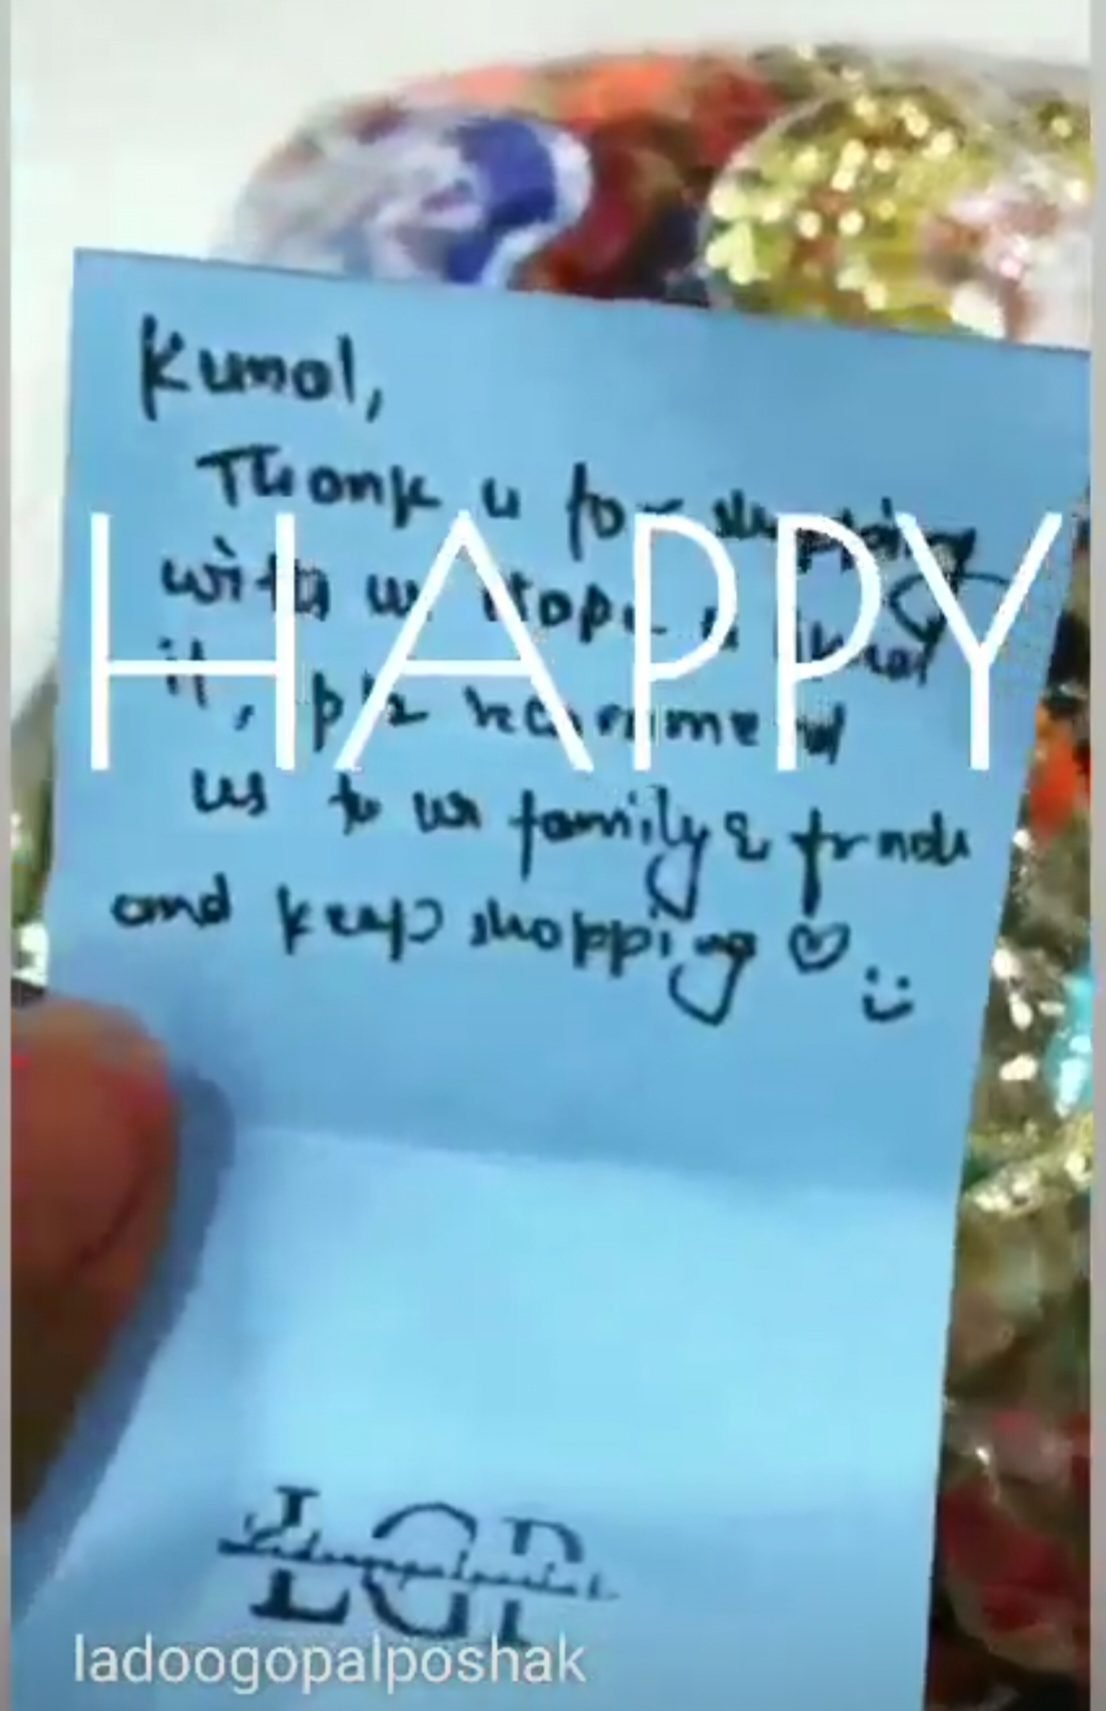 Kunal,
Thank u for shopping
HAPPY
with us Hope u liked
it, plz recommend
us to ur family & frnds
and keep shopping ♡ :)
LGP
Ladoogopalposhak
ladoogopalposhak